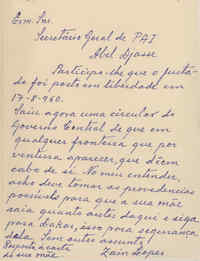 Exm. Snr.
Secretário Geral de PAI
Abel Djassi
Participo-lhe que o Justado
foi posto em liberdade em
17-8-960.
Saiu agora uma circular do
Governo Central de que em
qualquer fronteira que por
ventura aparecer, que dêem
cabo de si. No meu entender,
acho deve tomar as providências
possíveis para que a sua mãe
saia quanto antes daqui e siga
para Dakar, isso para segurança
dela. Sem outro assunto
Resposta à carta
de sua mãe. Zain Lopes